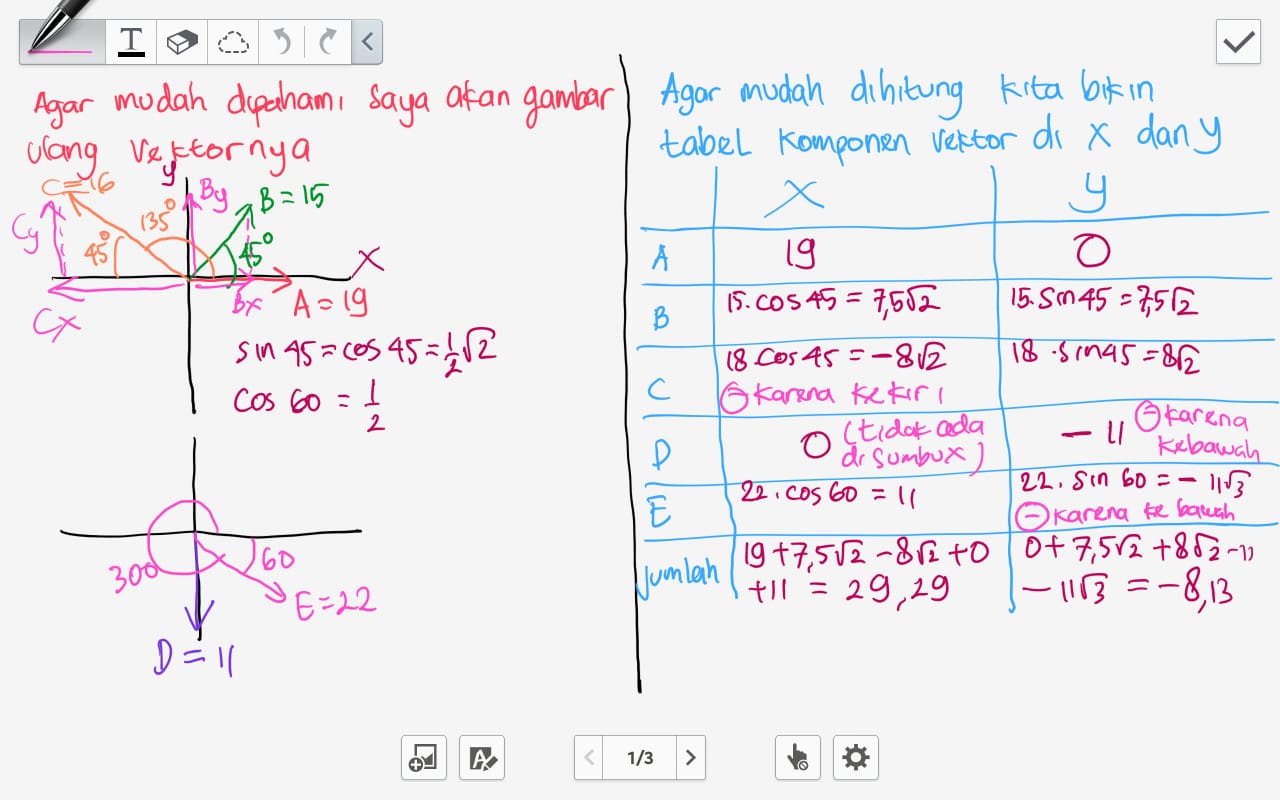 T
Agar mudah dipahami saya akan gambar
ulang vektornya
y
C=16
By
B=15
135°
Cy
45°
45°
X
Bx
A=19
Cx
sin 45=cos 45=1/2√2
cos 60 = 1/2
300
60
E=22
D=11
Agar mudah dihitung kita bikin
tabel komponen vektor di x dan y
X
y
A
19
0
B
15.cos 45 = 7,5√2
15.sin 45 = 7,5√2
C
18 cos 45 = -8√2
⊖karena kekiri
18 .sin 45 = 8√2
D
0 (tidak ada
di sumbu x)
- 11
⊖karena
kebawah
E
22.cos 60 = 11
22. sin 60 = - 11√3
⊖karena ke bawah
Jumlah
19+7,5√2 -8√2 +0
+11 = 29,29
0+ 7,5√2 +8√2 -11
- 11√3 = -8,13
A
1/3